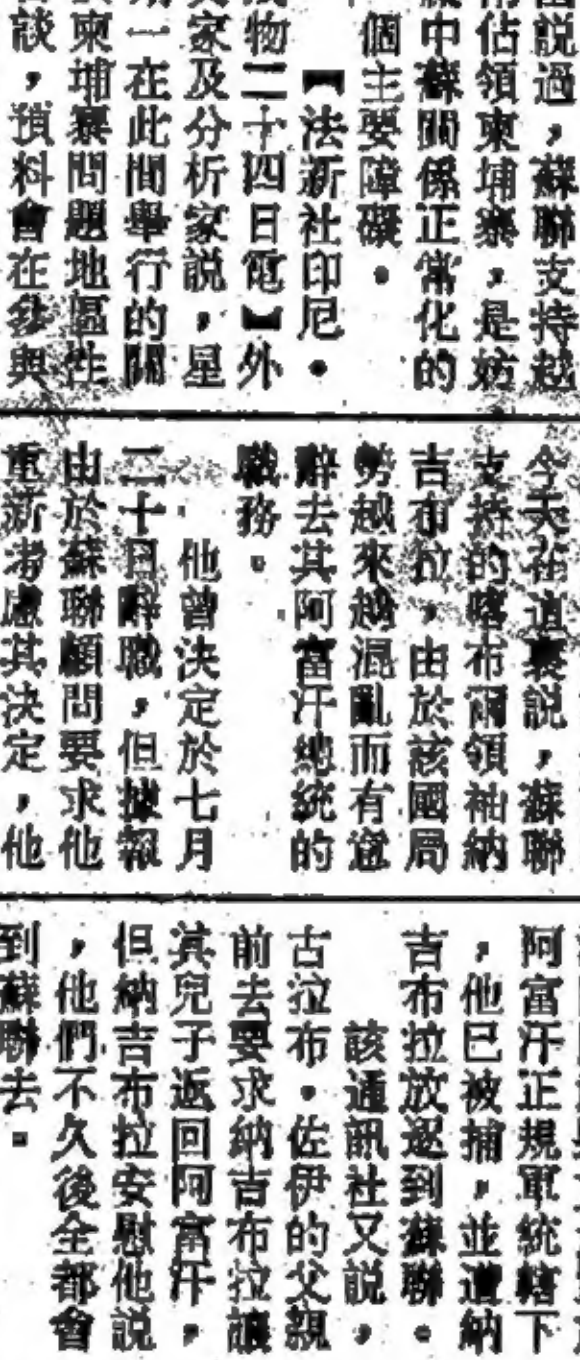 說過，蘇聯支持越
佔領柬埔寨，是妨
中蘇關係正常化的
個主要障礙。
【法新社印尼·
物二十四日電】外
家及分析家說，星
一在此間舉行的關
柬埔寨問題地區性
談，預料會在參與
今天在這裏說，蘇聯
支持的喀布爾領袖納
吉布拉，由於該國局
勢越來越混亂而有意
辭去其阿富汗總統的
職務。
他曾決定於七月
二十日辭職，但據報
由於蘇聯顧問要求他
重新考慮其決定，他
阿富汗正規軍統轄下
，他已被捕，並遭納
吉布拉放逐到蘇聯。
該通訊社又說，
古拉布·佐伊的父親
前去要求納吉布拉讓
其兒子返回阿富汗，
但納吉布拉安慰他說
，他們不久後全都會
到蘇聯去。